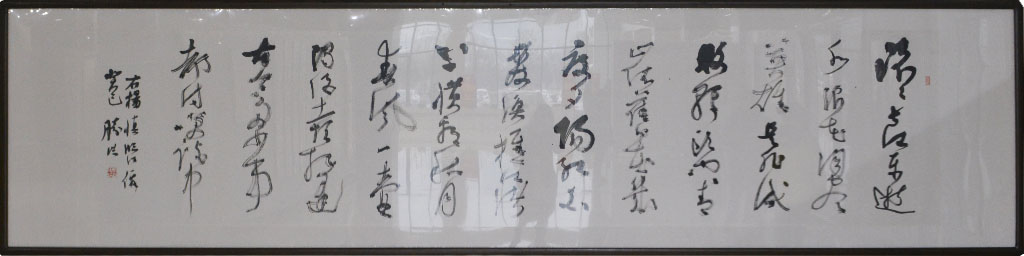 滚々长江东逝
水浪花淘尽
英雄是非成
败转头空青
山依旧在几
度夕阳红白
发渔樵江渚
上惯看秋月
春风一壶
浊酒喜相逢
古今多少事
都付笑谈中
右杨慎临江仙
癸巳